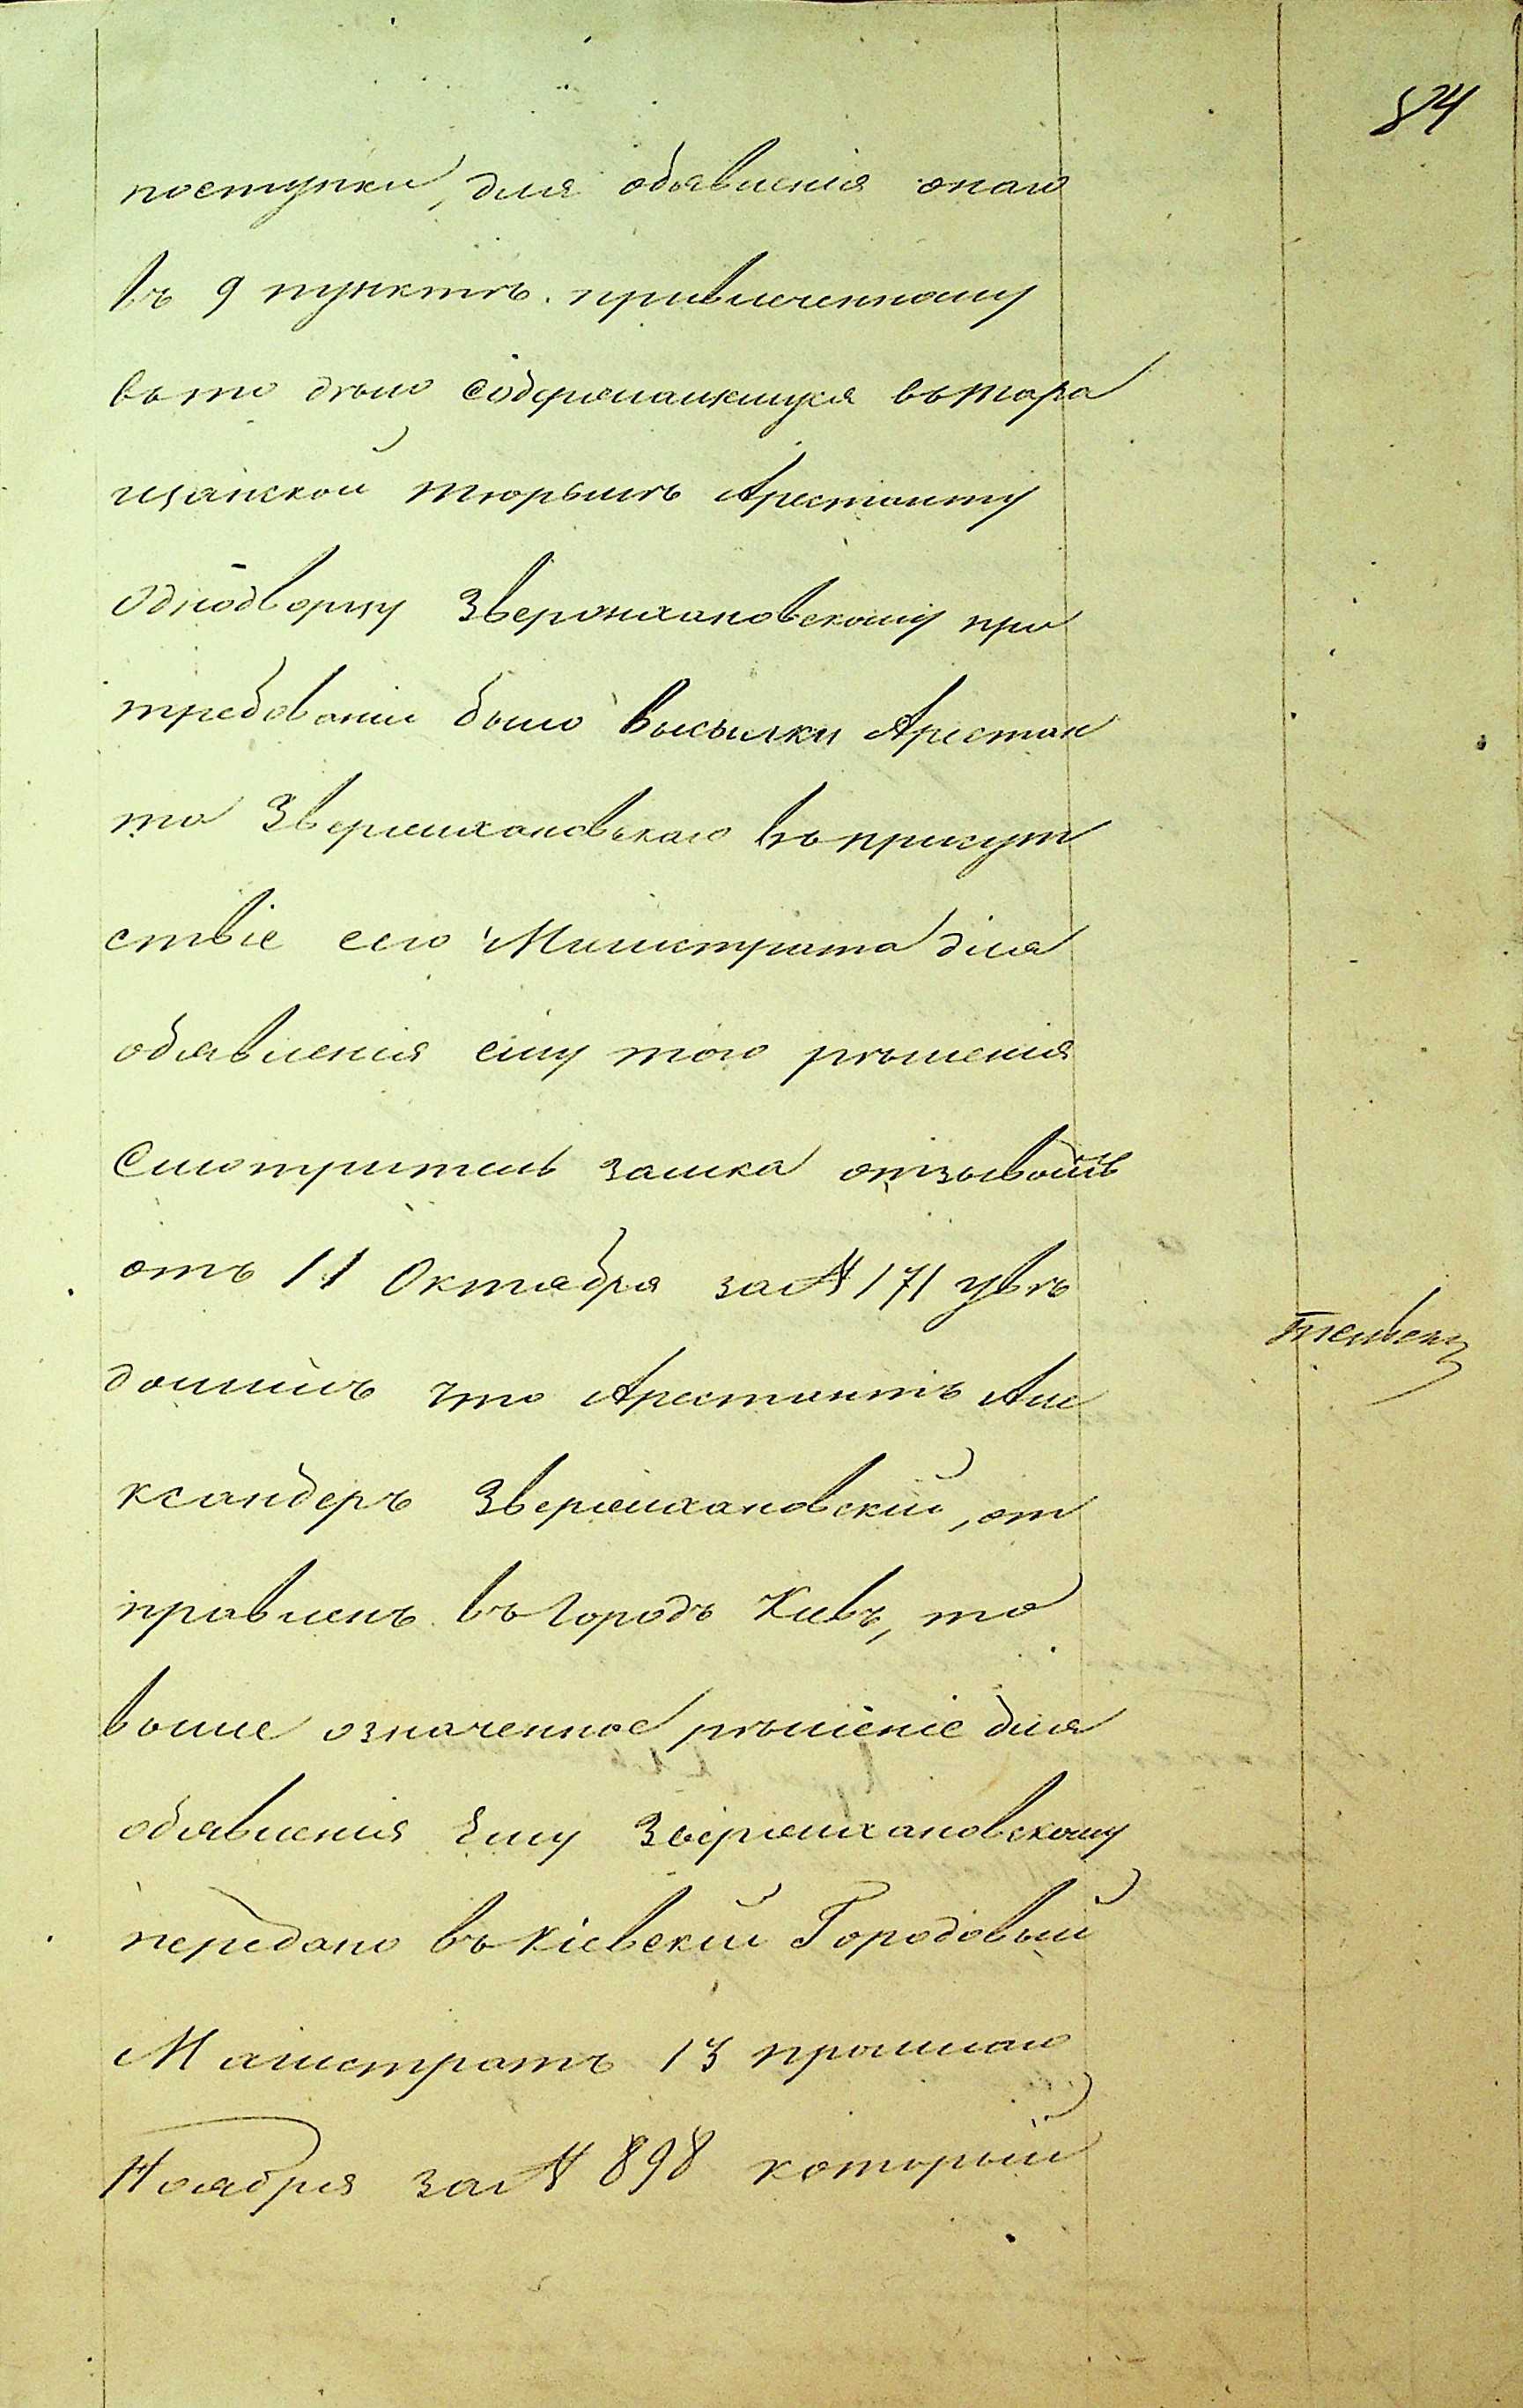 84
поступки, для объявленія онаго
въ 9 пунктѣ. привлеченному
въ то дѣло содержащемуся въ Тара
щанской тюрьмѣ Арестанту
Однодворцу Звержхановскому при
требованіи было высылки Арестан
та Звержхановскаго въ присут
ствіе сего Магистрата для
объявленія ему того рѣшенія
Смотритель замка отзывомъ
отъ 11 Октября за № 171 увѣ
домилъ что Арестантъ Але
ксандеръ Звержхановскій, от
правленъ въ городъ Кіевъ, то
выше означенное рѣшеніе для
объявленія Ему Звержхановскому
передано въ Кіевскій Городовый
Магистратъ 13 прошлаго
Ноября за № 898 который